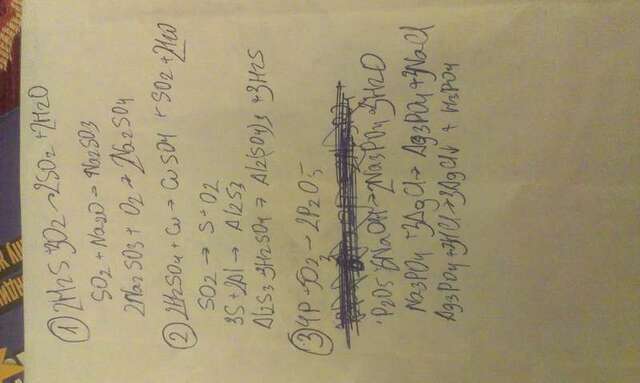 ① 2H2S + 3O2 → 2SO2 + 2H2O
SO2 + Na2O → Na2SO3
2Na2SO3 + O2 → 2Na2SO4
② 2H2SO4 + Cu → CuSO4 + SO2 + 2H2O
SO2 → S + O2
3S + 2Al → Al2S3
Al2S3 + 3H2SO4 → Al2(SO4)3 + 3H2S
③ 4P + 5O2 → 2P2O5
P2O5 + 6NaOH → 2Na3PO4 + 3H2O
Na3PO4 + 3AgCl → Ag3PO4 + 3NaCl
Ag3PO4 + 3HCl → 3AgCl↓ + H3PO4